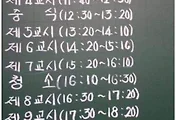 제4교시(11:40~12:30)
중 식(12:30~13:20)
제5교시(13:20~14:10)
제6교시(14:20~15:10)
제7교시(15:20~16:10)
청 소(16:10~16:30)
제8교시(16:30~17:20)
제9교시(17:30~18:20)